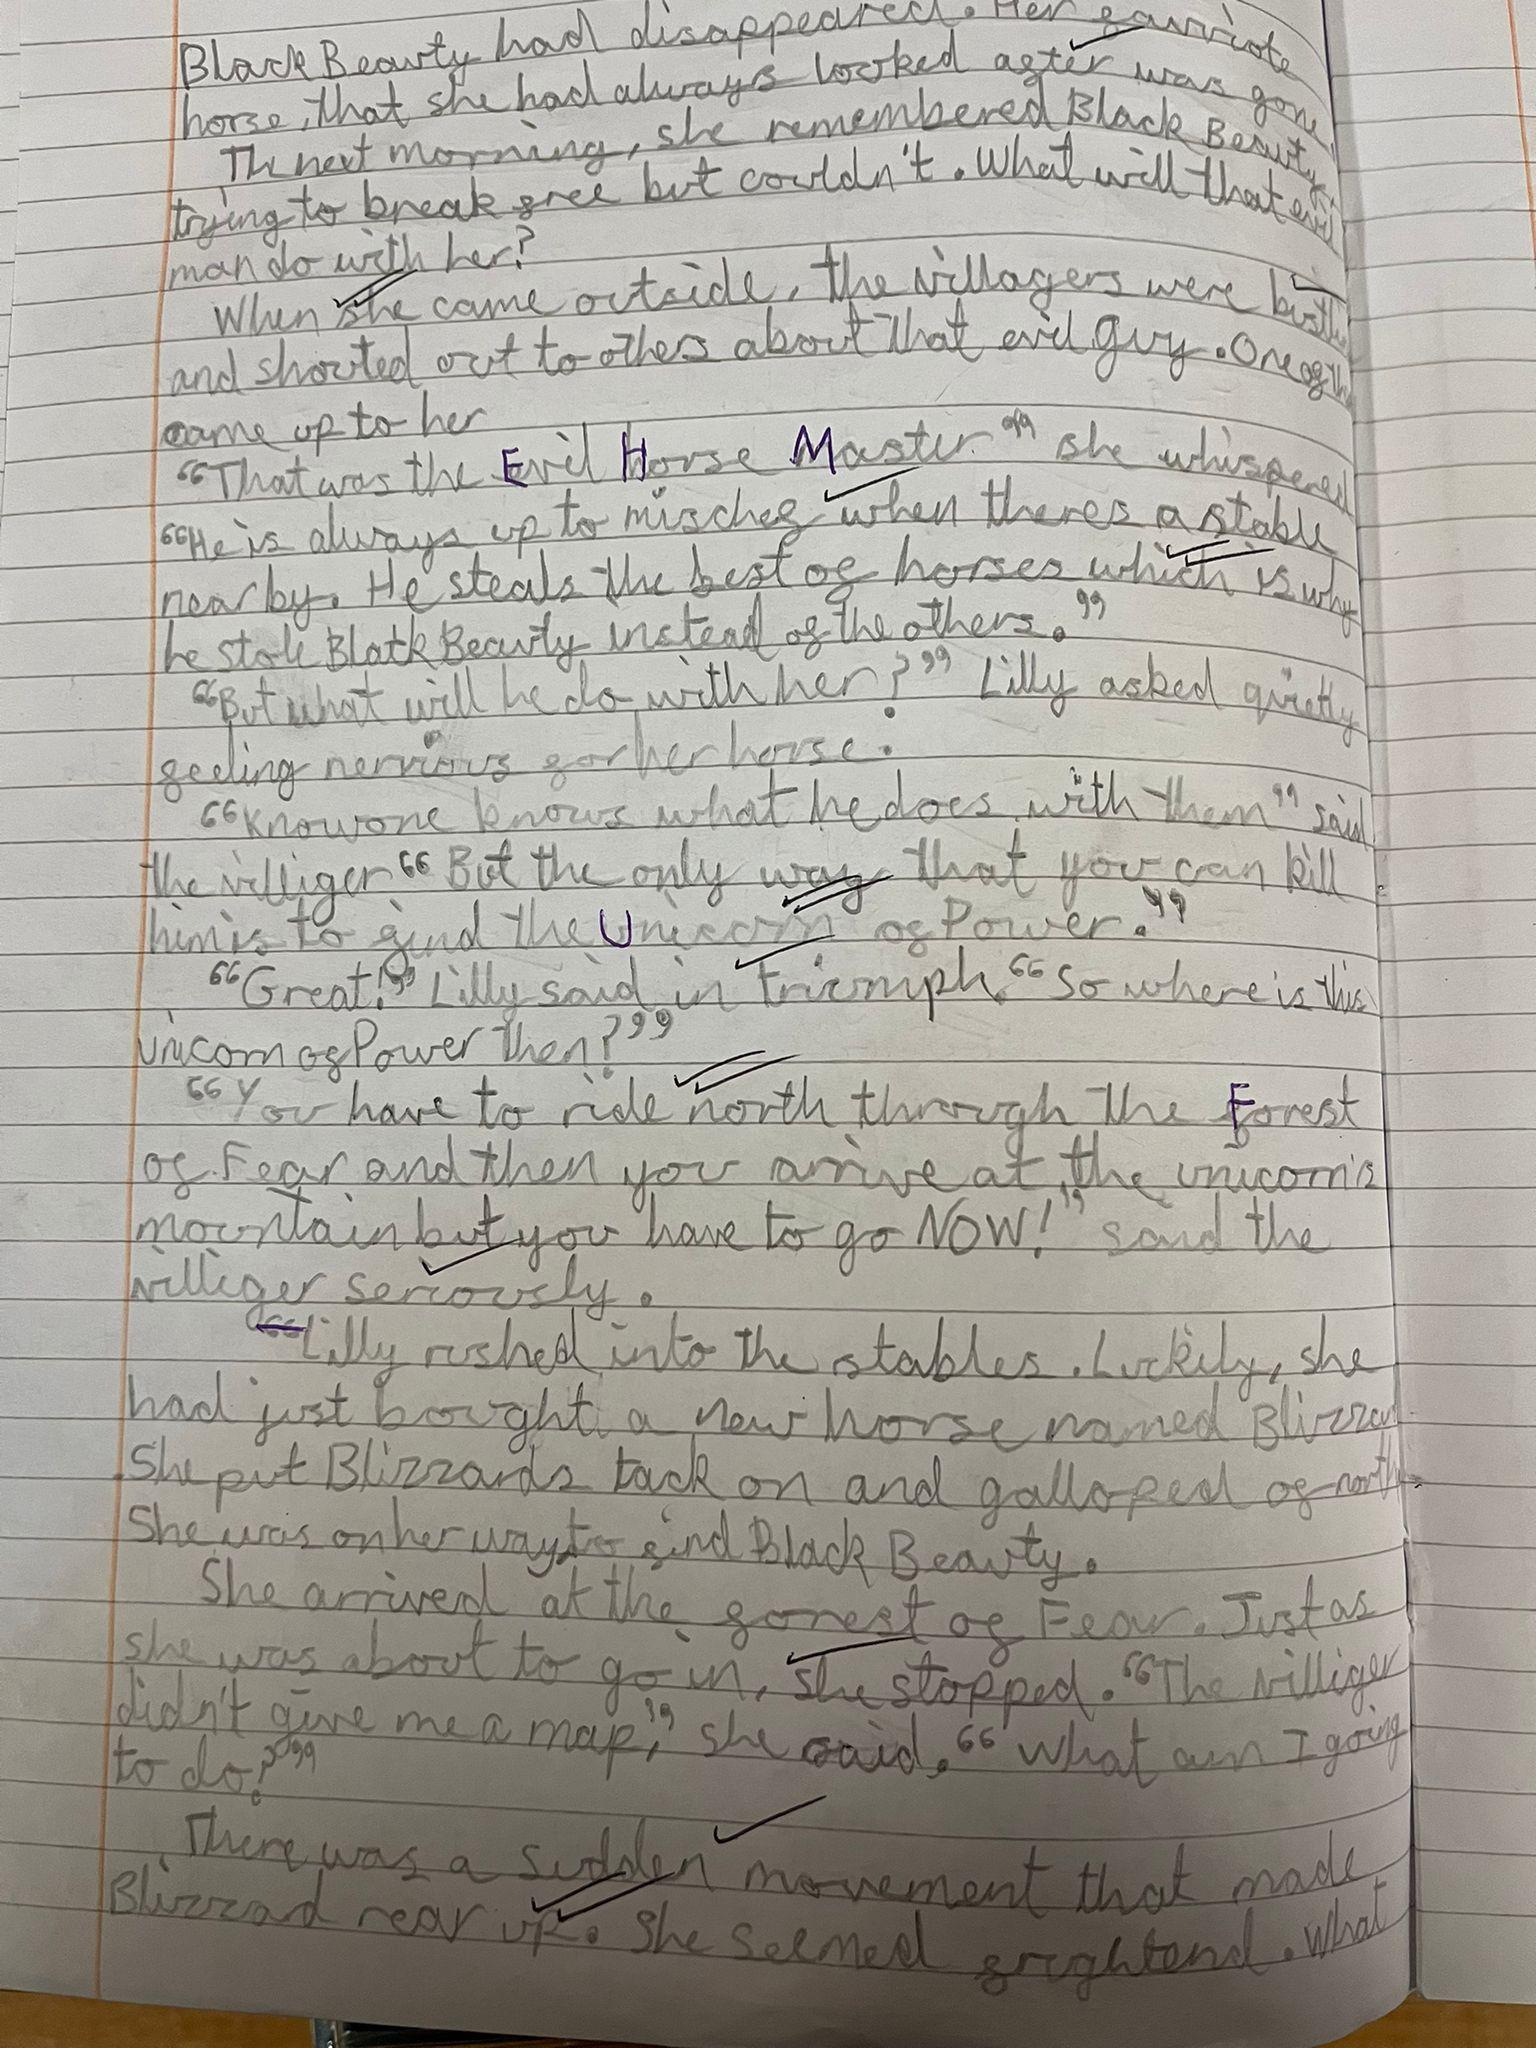 Black Beauty had disappeared. Her favriote
horse, that she had always looked after was gone
Th next morning, she remembered Black Beauty
trying to break free but couldn't. What will that evil
man do with her?
When she came outside, the villagers were
and shouted out to others about that evil guy. One of
came up to her
"That was the Evil Horse Master." she whispered
"He is always up to mischef when theres a stable
near by. He steals the best of horses which is why
he stole Black Beauty instead of the others."
"But what will he do with her?" Lilly asked quietly
feeling nervious for her horse.
"Knowone knows what he does with them" said
the villiger "But the only way that you can kill
him is to find the Unicorn of Power."
"Great!" Lilly said in triumph. "So where is this
unicorn of Power then?"
"You have to ride north through the Forest
of Fear and then you arrive at the unicorn's
mountain but you have to go NOW!" said the
villiger seriously.
Lilly rushed into the stables. Luckily, she
had just bought a new horse named Blizzard
. She put Blizzards tack on and galloped of north
She was on her way to find Black Beauty.
She arrived at the forest of Fear. Just as
she was about to go in, she stopped. "The villiger
didn't give me a map," she said. "What am I going
to do?"
There was a sudden movement that made
Blizzard rear up. She seemed frightend. What